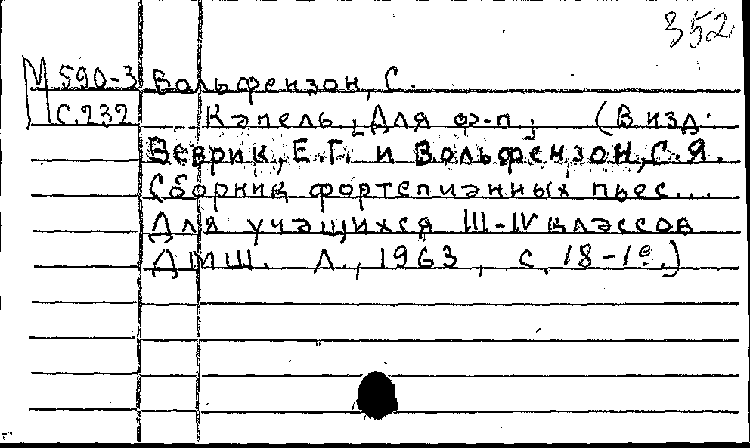 352
М 590-3 Вольфензон, С.
С.232 Капель. Для ф-п. (В изд.
Веврик, Е.Г. и Вольфензон, С.Я.
Сборник фортепианных пьес...
Для учащихся III-IV классов
ДМШ. Л., 1963, с. 18-19.)